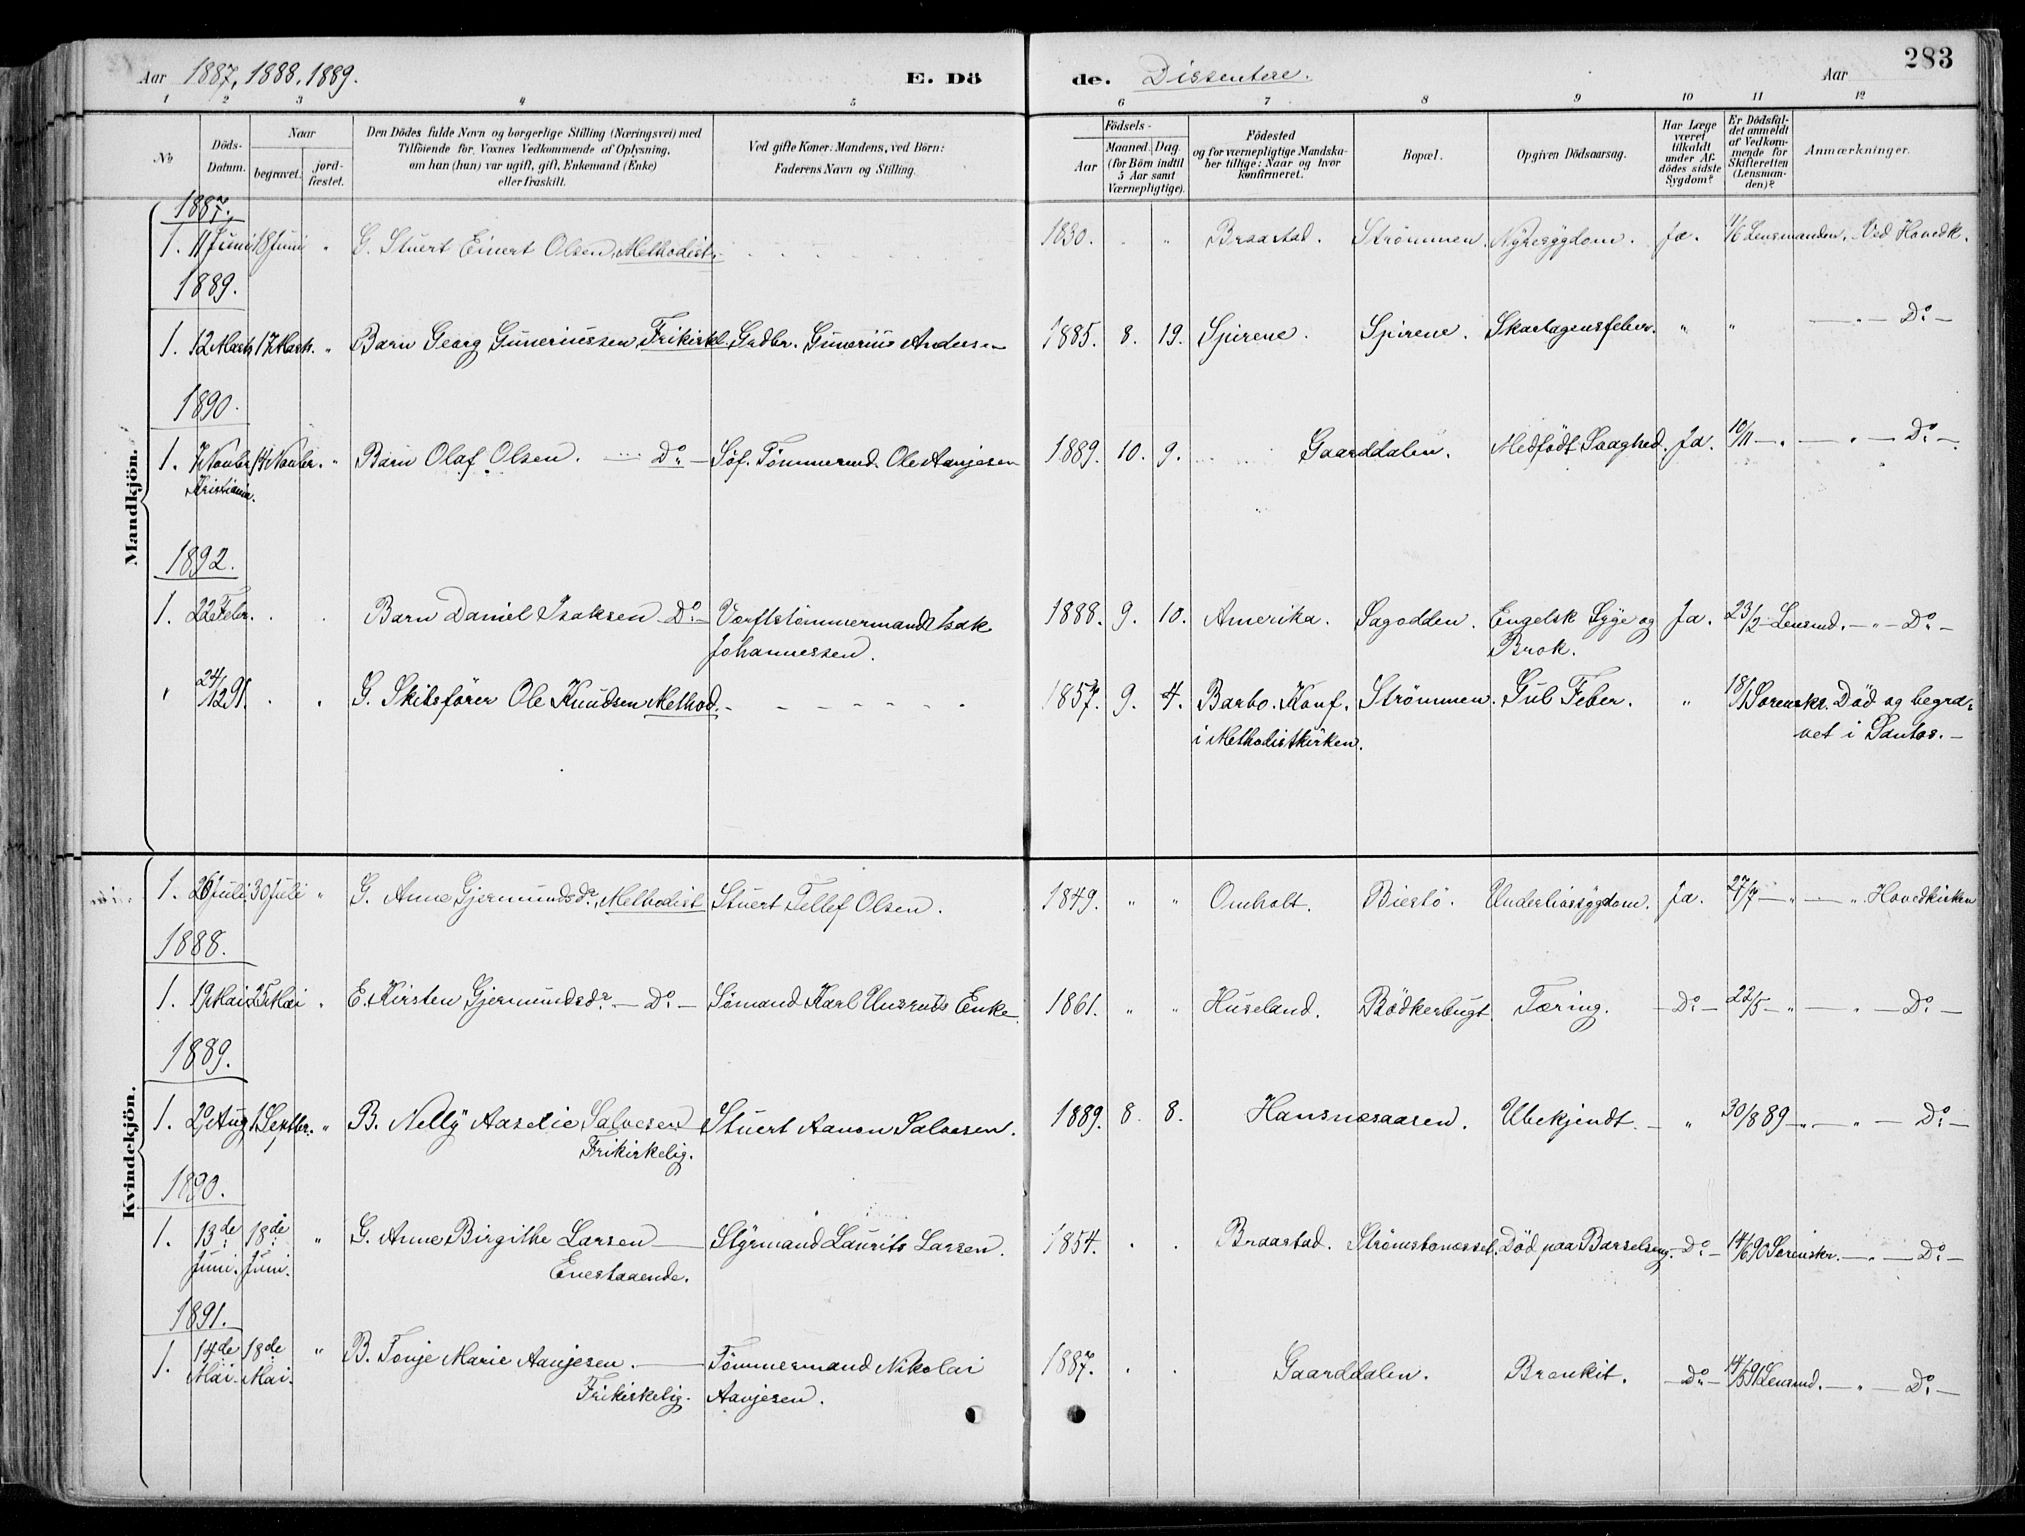 283
Aar 1887, 1888. 1889. E. Dö de. Dissentere. Aar
1 2 3 4 5 6 7 8 9 10 11 12
No
Döds-Datum.
Naar
begravet.
jord-fæstet.
Den Dödes fulde Navn og borgerlige Stilling (Næringsvei) med
Tilföiende for Voxnes Vedkommende af Oplysning,
om han (hun) var ugift, gift, Enkemand (Enke)
eller fraskilt.
Ved gifte Koner: Mandens, ved Börn:
Faderens Navn og Stilling.
Födsels-
Aar
Maaned. Dag.
(for Börn indtil
5 Aar samt
Værnepligtige).
Födested
og for værnepligtige Mandska-
ber tillige: Naar og hvor
konfirmeret.
Bopæl.
Opgiven Dödsaarsag.
Har Læge
været
tilkaldt
under Af-
dödes sidste
Sygdom?
Er Dödsfal-
det anmeldt
af Vedkom-
mende for
Skifteretten
(Lensman-
den)?
Anmærkninger.
Mandkjön.
1887.
1. 11 Juni 18 Juni " G. Stuert Einert Olsen, Methodist. 1830. " " Braastad. Strømmen. Nyresygdom. Ja. 11/6 Lensmanden. - Ved Hovedk.
1889.
1. 12 Marts 17 Marts. " Barn Georg Guneriussen Frikirkl. Gadbr. Gunerius Andersen 1885. 8. 19. Spirene. Spirene. Skarlagensfeber. " " — " — Do —
1890.
1. 7 Novbr. 14 Novbr. " Barn Olaf Olsen. — Do — Søf. Tømmermd. Ole Aanjesen 1889. 10. 9. Gaarddalen. Medfødt Svaghed. Ja. 10/11 — " — " — Do —
Kristiania.
1892.
1. 22 Febr. . . Barn Daniel Isaksen Do — Værftstømmermand Isak 1888. 9. 10. Amerika. Sagodden. Engelsk Syge og Ja. 23/2 Lensmd. — " — Do —
Johannessen. Brok.
" 24/12 91. . . G. Skibsfører Ole Knudsen Method. 1857. 9. 4. Barbo. Konf. Strømmen. Gul Feber. " 18/1 Sorenskr. Død og begra-
i Methodistkirken. vet i Santos. —
Kvindekjön.
1. 26 Juli 30 Juli " G. Anne Gjermundsdr. Methodist Stuert Tellef Olsen. 1849. " " Omholt. Biestø. Underlivssygdom. Ja. 27/7 — " — " Hovedkirken
1888.
1. 19 Mai 25 Mai " E. Kirsten Gjermundsdr. — Do — Sømand Karl Knsruds Enke 1861. " " Huseland. Bødkerbugt. Tæring. — Do — 22/5 — " — " — Do —
1889.
1. 29 Aug 1 Septbr. " B. Nelly Aaselie Salvesen Stuert Aanon Salvesen. 1889. 8. 8. Hansnæsaasen. Ubekjendt. — " 30/8 89 — " — " — Do —
Frikirkelig.
1890.
1. 13de 18de " G. Anne Birgithe Larsen — Styrmand Laurits Larsen. 1854. . . Braastad. Strømsbonesset. Død paa Barselseng. — Do — 14/6 90 Sorenskr. — " — Do —
Juni. Juni. Enestaaende.
1891.
1. 14de 18de " B. Tonje Marie Aanjesen. — Tømmermand Nikolai 1887. . . Gaarddalen. Bronkit. — Do — 14/5 91 Lensmd. — " — Do —
Mai. Mai. Frikirkelig. Aanjesen.